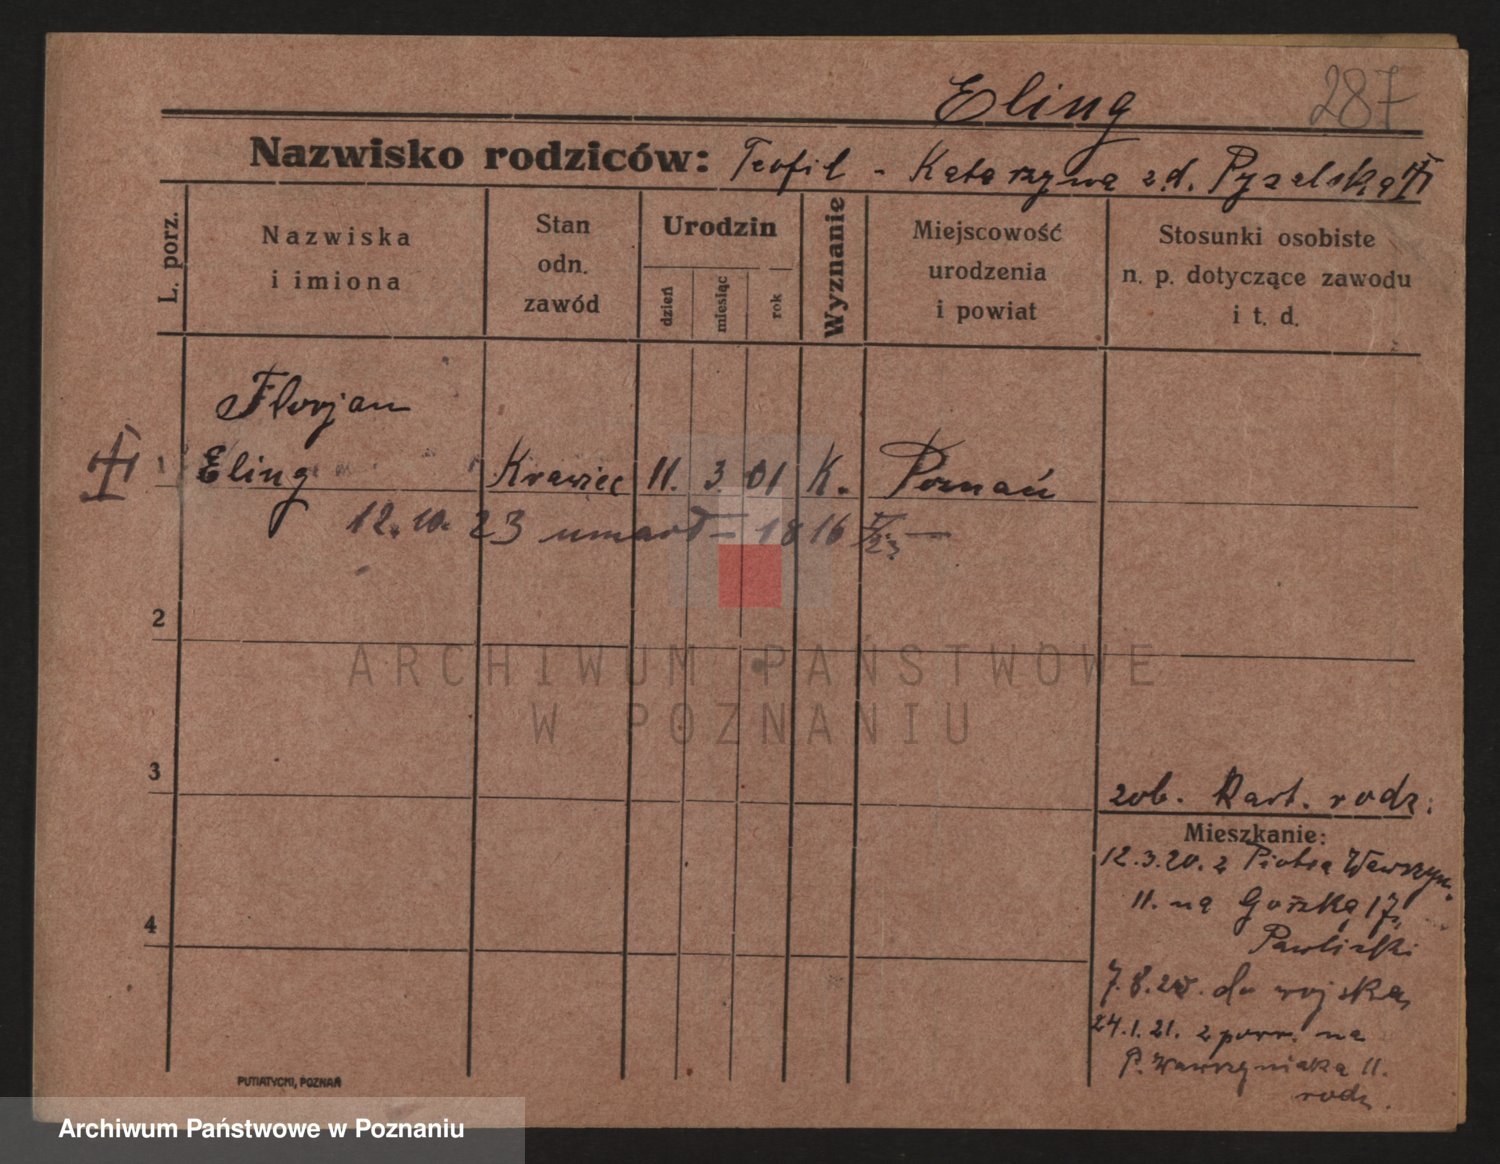 Eling 287
Nazwisko rodziców: Teofil - Katarzyna z.d. Pyzalska
L. porz.
Nazwiska
i imiona
Stan
odn.
zawód
Urodzin
dzień
miesiąc
rok
Wyznanie
Miejscowość
urodzenia
i powiat
Stosunki osobiste
n. p. dotyczące zawodu
i t. d.
Florjan
1 Eling Krawiec 11. 3. 01 K. Poznań
12. 10. 23 umarł = 1816
2
3
4
zob. Kart. rodz.
Mieszkanie:
12.3.20. z Piotra Wawrzyn.
11. na Górską 17,
7.8.20. do wojska,
24.1.21. z pow. na
P. Wawrzyniaka 11.
rodz.
PUTIATYCKI, POZNAŃ
ARCHIWUM PAŃSTWOWE
W POZNANIU
Archiwum Państwowe w Poznaniu